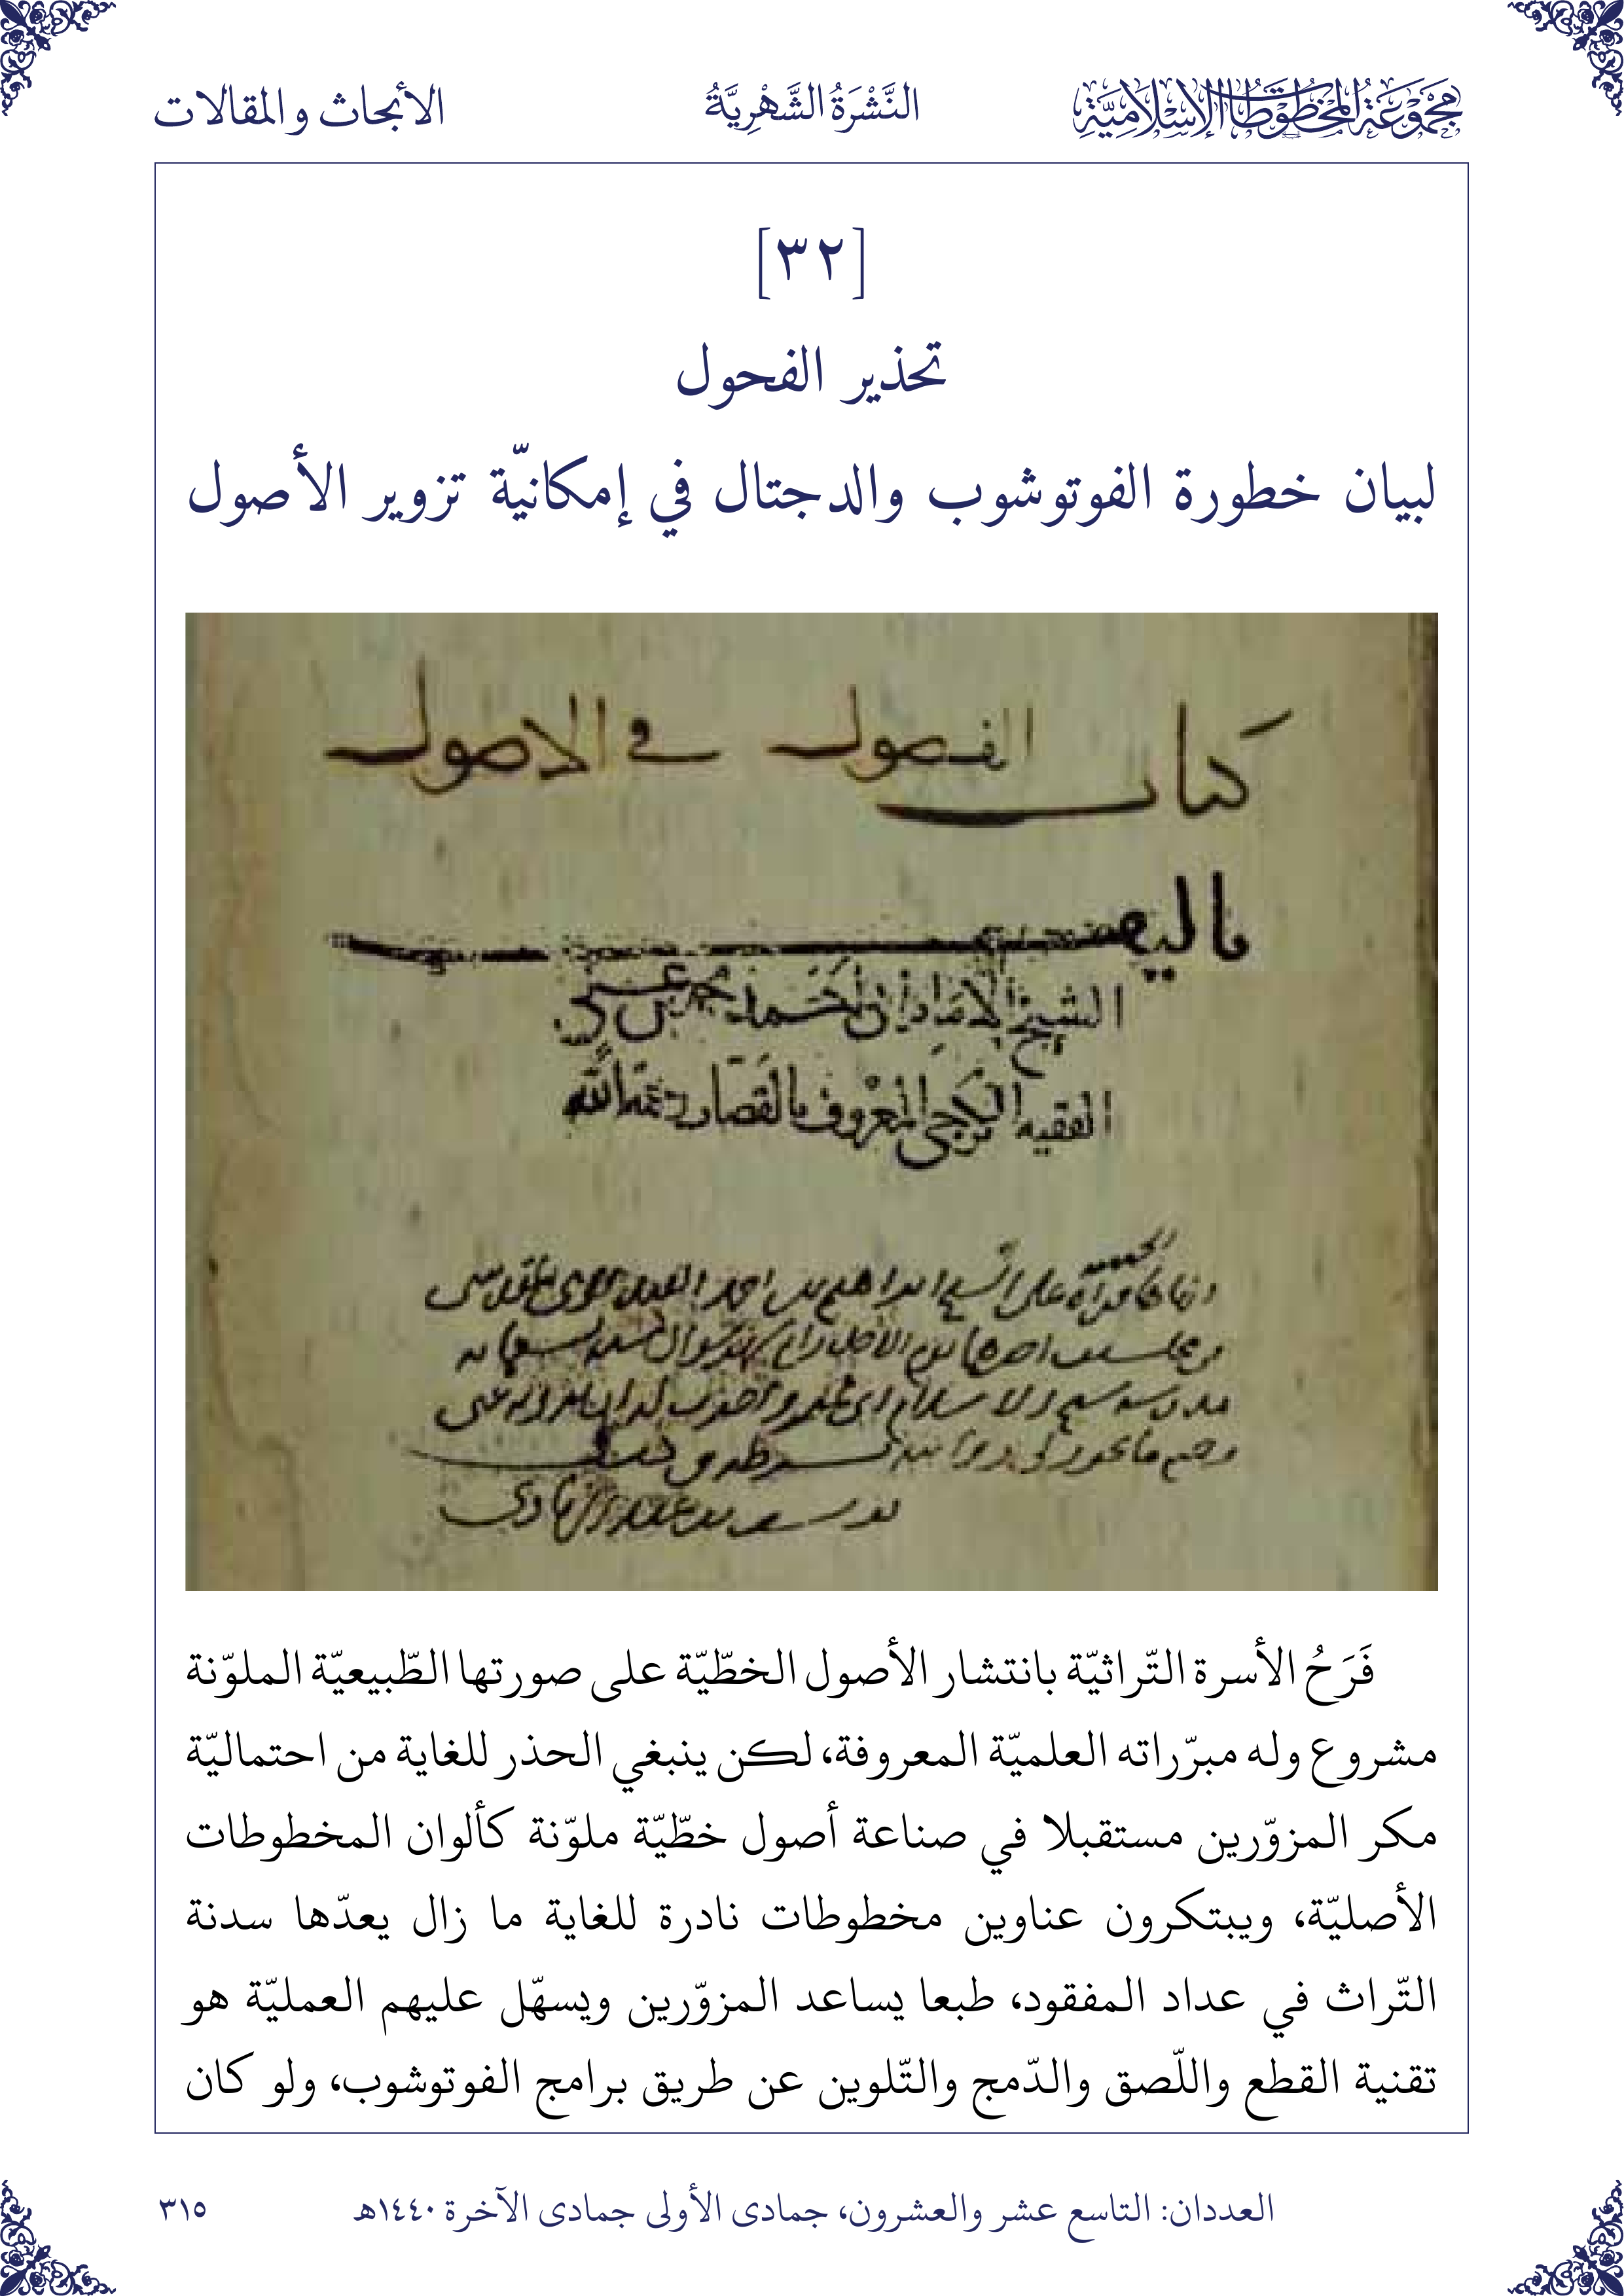 مَجْمُوعَةُ المَخْطُوطَاتِ الإِسْلَامِيَّةِ
النَّشْرَةُ الشَّهْرِيَّةُ
الأبحاث والمقالات
[٣٢]
تحذير الفحول
لبيان خطورة الفوتوشوب والدجتال في إمكانيّة تزوير الأصول
كتاب الفصول في الاصول
تاليف
الشيخ الامام
الفقيه الكرجي المعروف بالقصاب رحمه الله
فَرَحُ الأسرة التّراثيّة بانتشار الأصول الخطّيّة على صورتها الطّبيعيّة الملوّنة
مشروع وله مبرّراته العلميّة المعروفة، لكن ينبغي الحذر للغاية من احتماليّة
مكر المزوّرين مستقبلا في صناعة أصول خطّيّة ملوّنة كألوان المخطوطات
الأصليّة، ويبتكرون عناوين مخطوطات نادرة للغاية ما زال يعدّها سدنة
التّراث في عداد المفقود، طبعا يساعد المزوّرين ويسهّل عليهم العمليّة هو
تقنية القطع واللّصق والدّمج والتّلوين عن طريق برامج الفوتوشوب، ولو كان
العددان: التاسع عشر والعشرون، جمادى الأولى جمادى الآخرة ١٤٤٠هـ
٣١٥